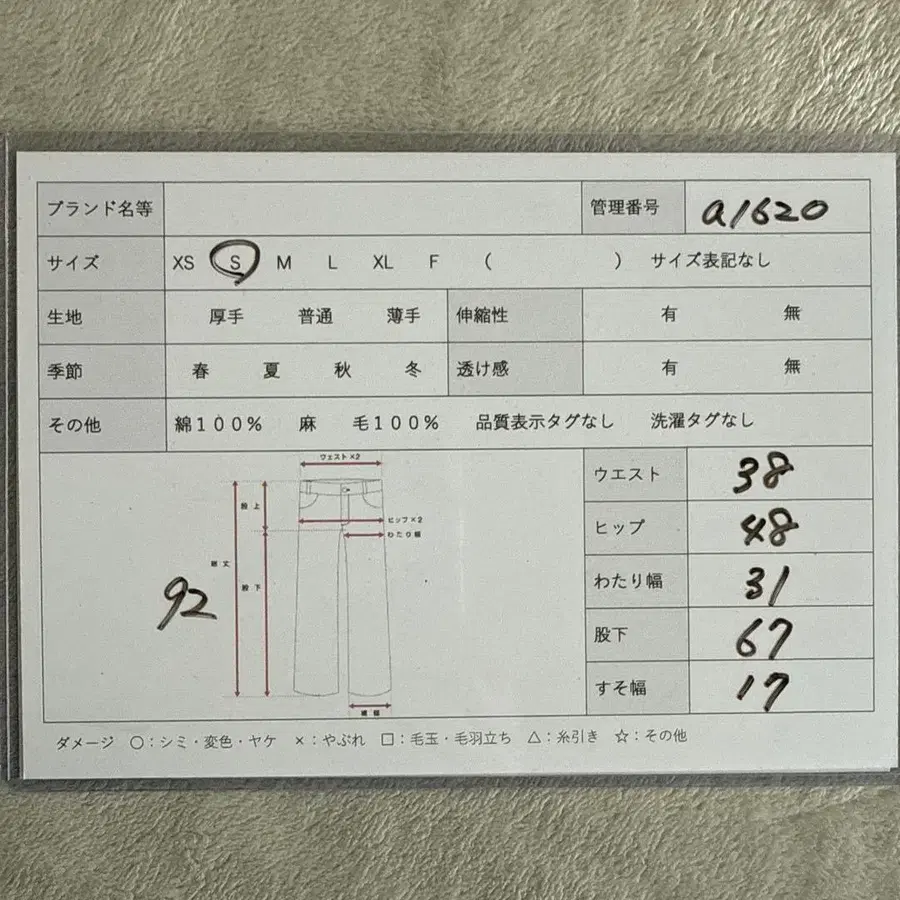 ブランド名等 管理番号 a1620
サイズ XS S M L XL F ( ) サイズ表記なし
生地 厚手 普通 薄手 伸縮性 有 無
季節 春 夏 秋 冬 透け感 有 無
その他 綿１００％ 麻 毛１００％ 品質表示タグなし 洗濯タグなし
ウェスト×2
股上
ヒップ×2
わたり幅
総丈
股下
92
裾幅
ウエスト 38
ヒップ 48
わたり幅 31
股下 67
すそ幅 17
ダメージ ○：シミ・変色・ヤケ ×：やぶれ □：毛玉・毛羽立ち △：糸引き ☆：その他